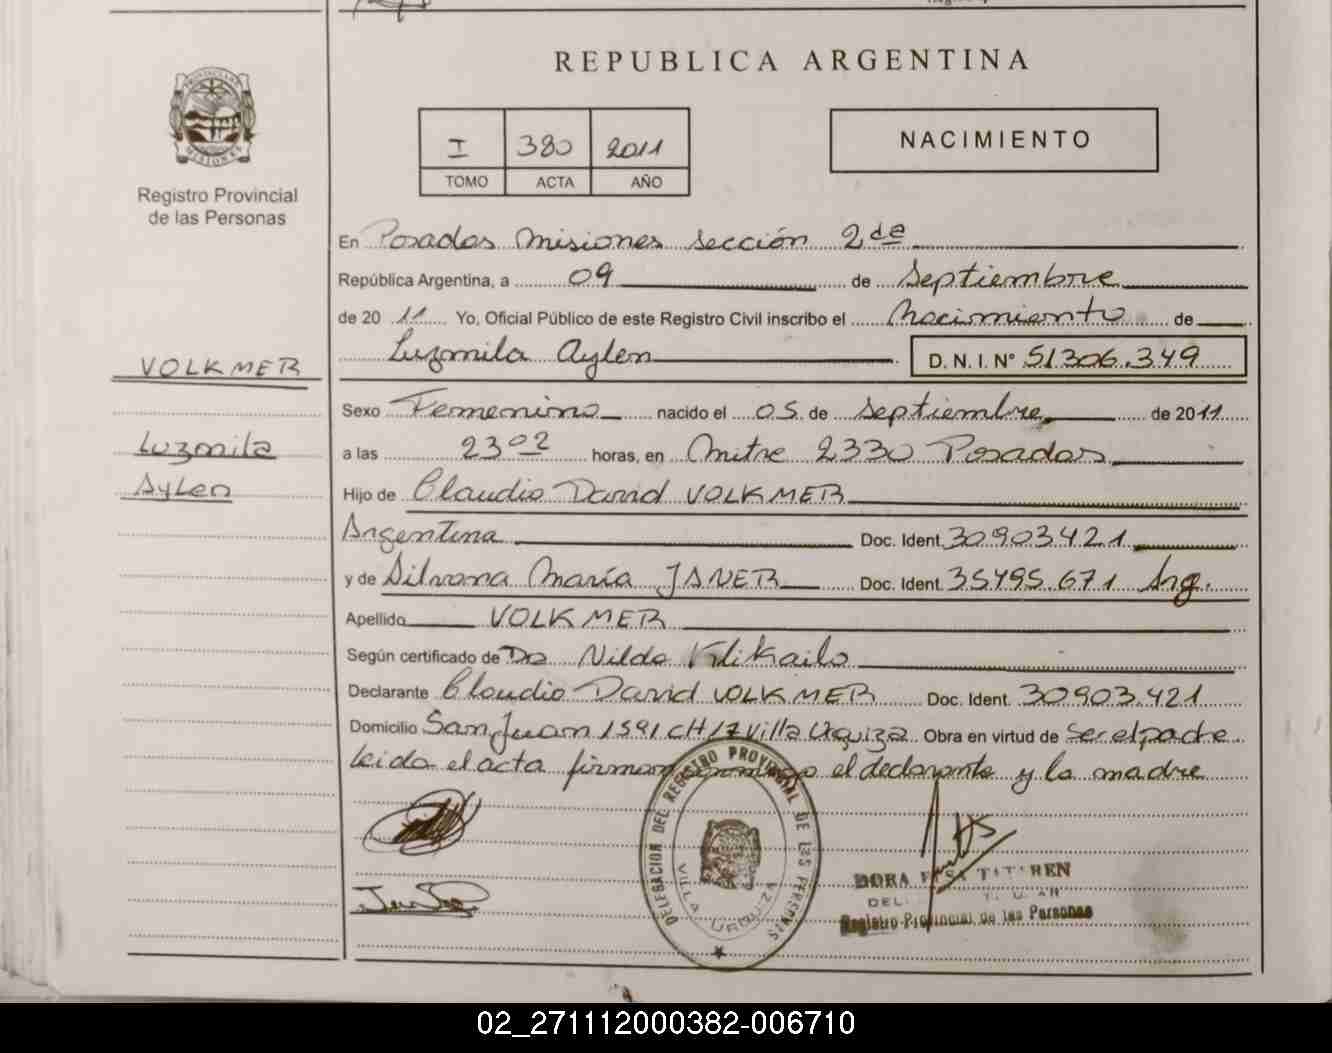 REPUBLICA ARGENTINA
I 380 2011
TOMO ACTA AÑO
NACIMIENTO
Registro Provincial
de las Personas
VOLKMER
Luzmila
Aylen
En Posadas Misiones sección 2da
República Argentina, a 09 de Septiembre
de 2011 Yo, Oficial Público de este Registro Civil inscribo el Nacimiento de
Luzmila Aylen D.N.I. Nº 51306.349
Sexo Femenino nacido el 05 de Septiembre de 2011
a las 23 02 horas, en Mitre 2330 Posadas
Hijo de Claudio David VOLKMER
Argentina Doc. Ident. 30903421
y de Silvana María Doc. Ident. 35495.671 Arg.
Apellido VOLKMER
Según certificado de Dra Nilda Klikailo
Declarante Claudio David VOLKMER Doc. Ident. 30903.421
Domicilio San Juan 1591 CH 17 Villa Urquiza Obra en virtud de Ser el padre
leida el acta firman el declarante y la madre
DELEGACION DEL REGISTRO PROVINCIAL DE LAS PERSONAS
VILLA URQUIZA
DORA
Registro Provincial de las Personas
02_271112000382-006710